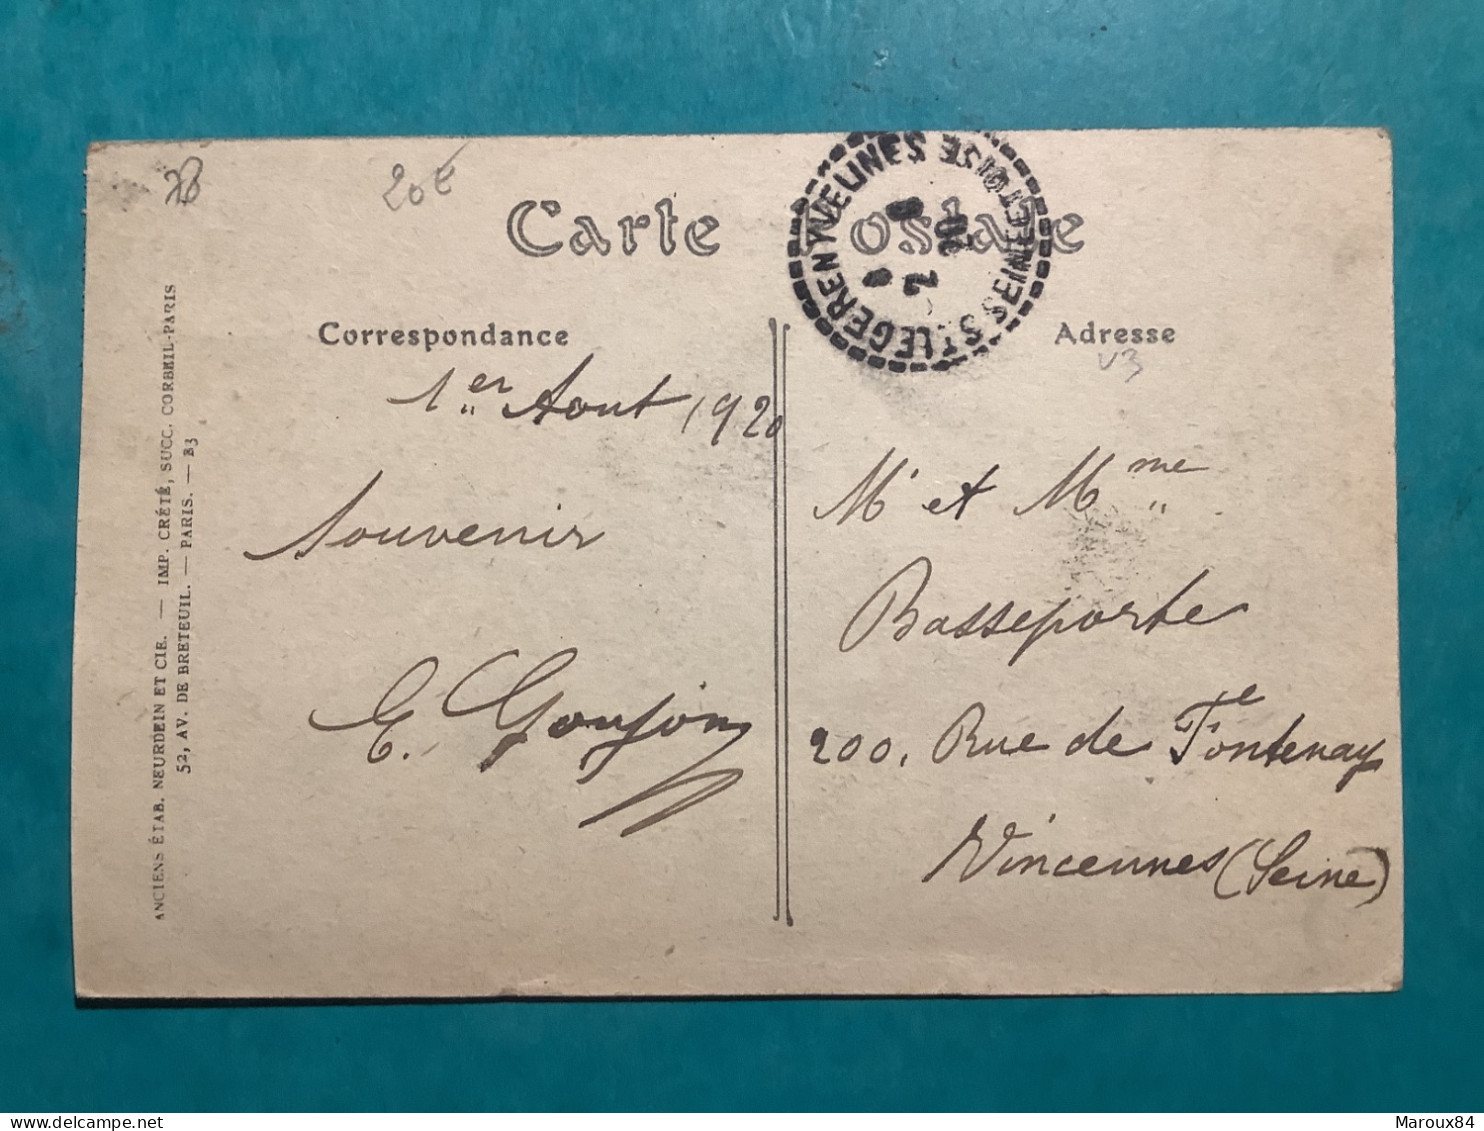 78
20€
Carte Postale
ST LEGER EN YVELINES SEINE ET OISE
2
8
20
Correspondance
Adresse
V3
1er Aout 1920
Souvenir
E. Goujon
Mr et Mme
Basseporte
200, Rue de Fontenay
Vincennes (Seine)
ANCIENS ÉTAB. NEURDEIN ET CIE. — IMP. CRÉTÉ, SUCC. CORBEIL-PARIS
52, AV. DE BRETEUIL. — PARIS. — B3
Maroux84